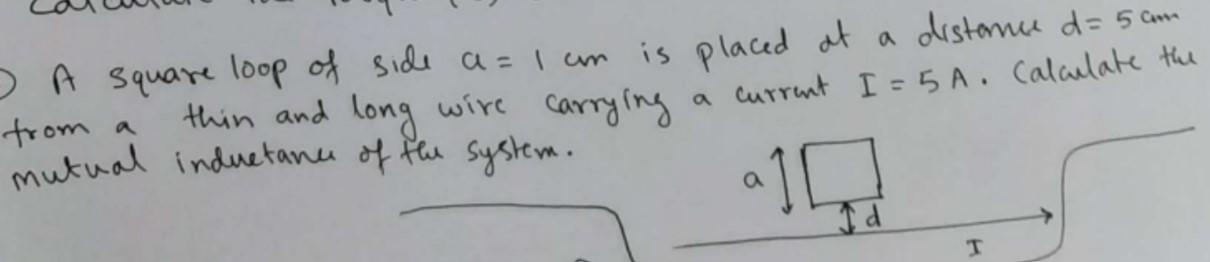 A square loop of side a = 1 cm is placed at a distance d = 5 cm
from a thin and long wire carrying a current I = 5 A. Calculate the
mutual inductance of the system.
a
d
I